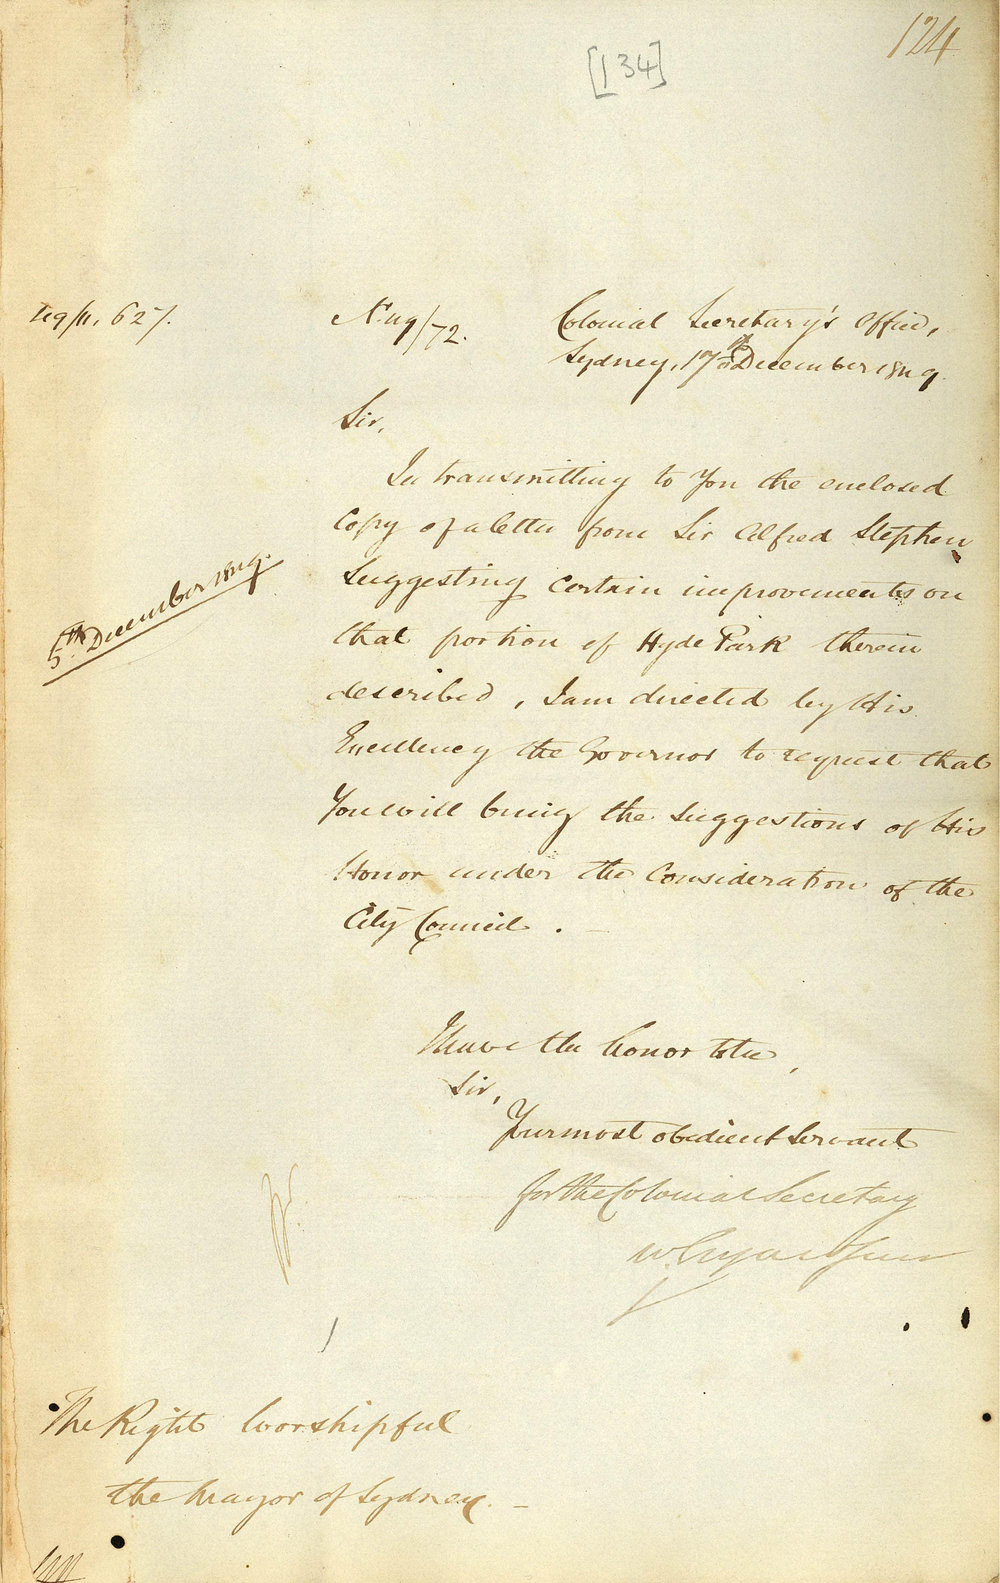 124
[134]
49/11,627.
No. 49/72.
Colonial Secretary's Office,
Sydney, 17th December 1849.
Sir,
In transmitting to You the enclosed
Copy of a letter from Sir Alfred Stephen
5th December 1849.
Suggesting certain improvements on
that portion of Hyde Park therein
described, I am directed by His
Excellency the Governor to request that
You will bring the Suggestions of His
Honor under the Consideration of the
City Council.
I have the honor to be,
Sir,
Your most obedient Servant
for the Colonial Secretary
The Right Worshipful
the Mayor of Sydney.